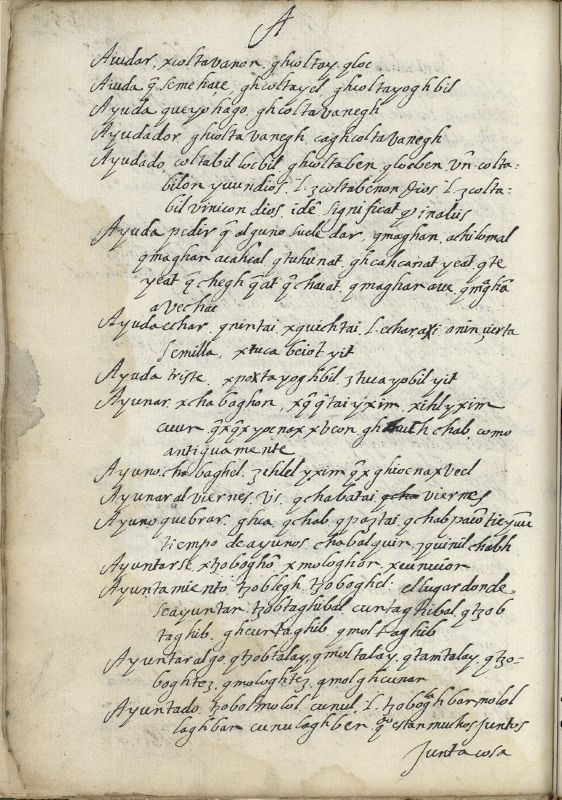 A
Aiudar. xcoltavanon. ghcoltay. qloc
Aiuda q̃. se me haçe, ghcoltayel, ghcoltayoghbil
Ayuda que yo hago. ghcoltavanegh
Ayudador. ghcoltavanegh. caghcoltavanegh
Ayudado. coltabil locbil ghcoltaben. qloeben. vn colta-
bilon yuun dios. l. zcoltabenon Dios. l. zcolta-
bil vinicon dios. idẽ significat
Ayuda pedir q̃ alguno suele dar. qmaghan. achibmal
qmaghar acahcal qtuhunat ghcahcanat yeat. qte
yeat q̃chegh q̃at q̃chaiat. qmaghar aue.
avechae
Ayuda echar. qnintai. xquichtai. l. echaraxi onin zierta
semilla, xtuca beiot yit
Ayuda triste, xpoxtayoghbil. ztucayobil yit
Ayunar. xchabaghon. yxim. xihlyxim
cuur xvcon chab. como
antiguamente
Ayuno. chabaghel. zihlel yxim
Ayunar al viernes. Vs. qchabatai viernes
Ayuno quebrar. ghua. qchab. qpaztai. qchab
tiempo de ayunos. chabalquir. zquinil chabh
Ayuntarse. xtzoboghõ xmologhon. xcunuion
Ayuntamiento. tzoblegh. tzoboghel. el lugar donde
se ayuntar. tzobtaghibal cuntaghibal. qtzob
taghib. ghcuntaghib qmoltaghib
Ayuntar algo. qtzobtalay. qmoltalay. qtamtalay. qtzo-
boghtez. qmologhtez. qmolghcunar
Ayuntado. tzobolmolol. cunul. l. tzoboghbarmolol
laghbar cunulaghber. q̃ estan muchos juntos
Junta cosa